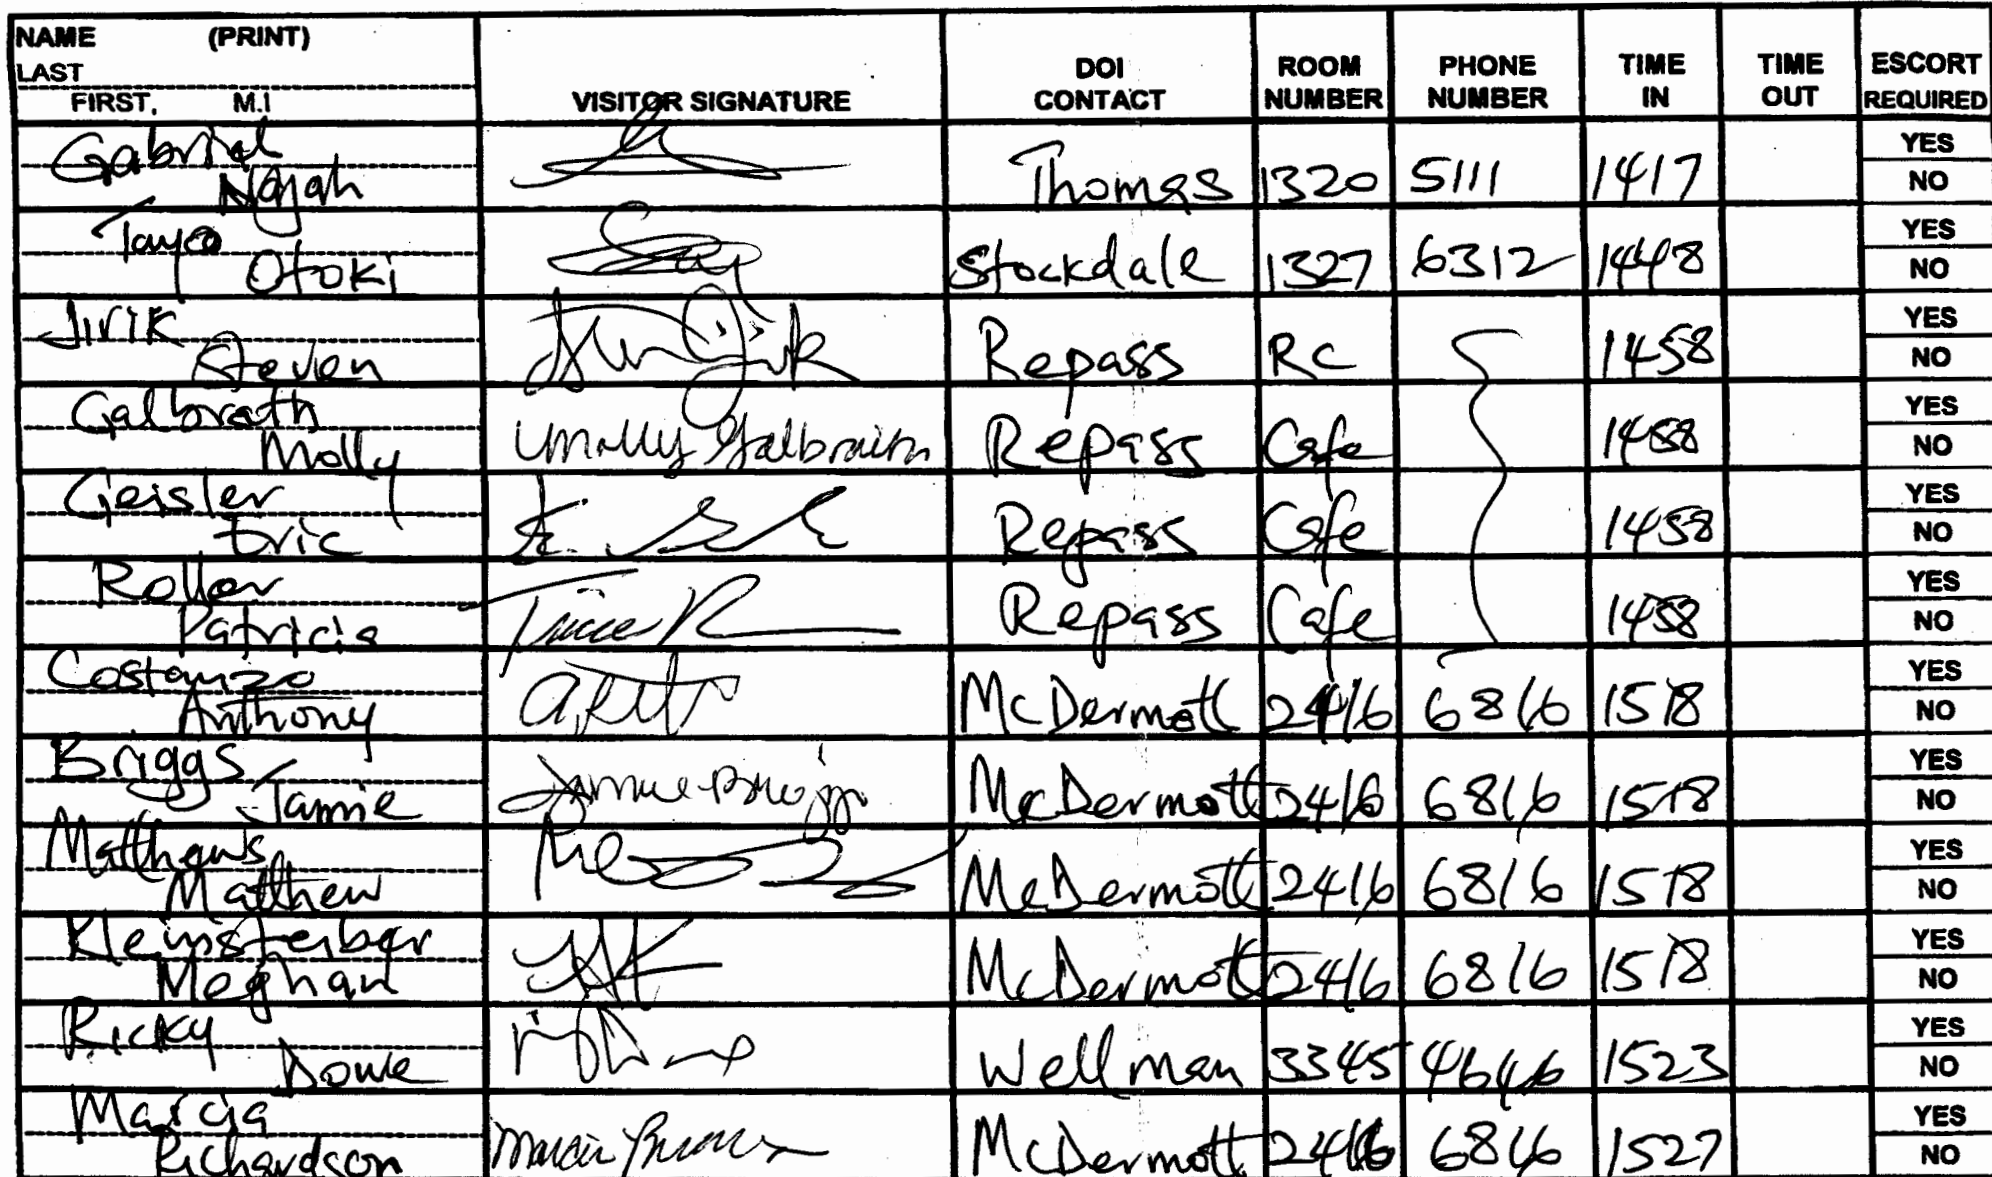 NAME (PRINT)
LAST
FIRST, M.I
VISITOR SIGNATURE
DOI CONTACT
ROOM NUMBER
PHONE NUMBER
TIME IN
TIME OUT
ESCORT REQUIRED
Gabrial
Najah Thomas 1320 5111 1417 YES NO
Tayo
Otoki Stockdale 1327 6312 1448 YES NO
Jirik
Steven Repass RC 1458 YES NO
Galbrath
Molly Molly Galbraith Repass Cafe 1458 YES NO
Geisler
Eric Repass Cafe 1458 YES NO
Roller
Patricia Repass Cafe 1458 YES NO
Costanzo
Anthony McDermott 2416 6816 1518 YES NO
Briggs
Jamie Jamie Briggs McDermott 2416 6816 1518 YES NO
Matthews
Matthew McDermott 2416 6816 1518 YES NO
Kleinsteiber
Meghan McDermott 2416 6816 1518 YES NO
Ricky
Dowe Wellman 3345 4646 1523 YES NO
Marcia
Richardson Marcia McDermott 2416 6816 1527 YES NO